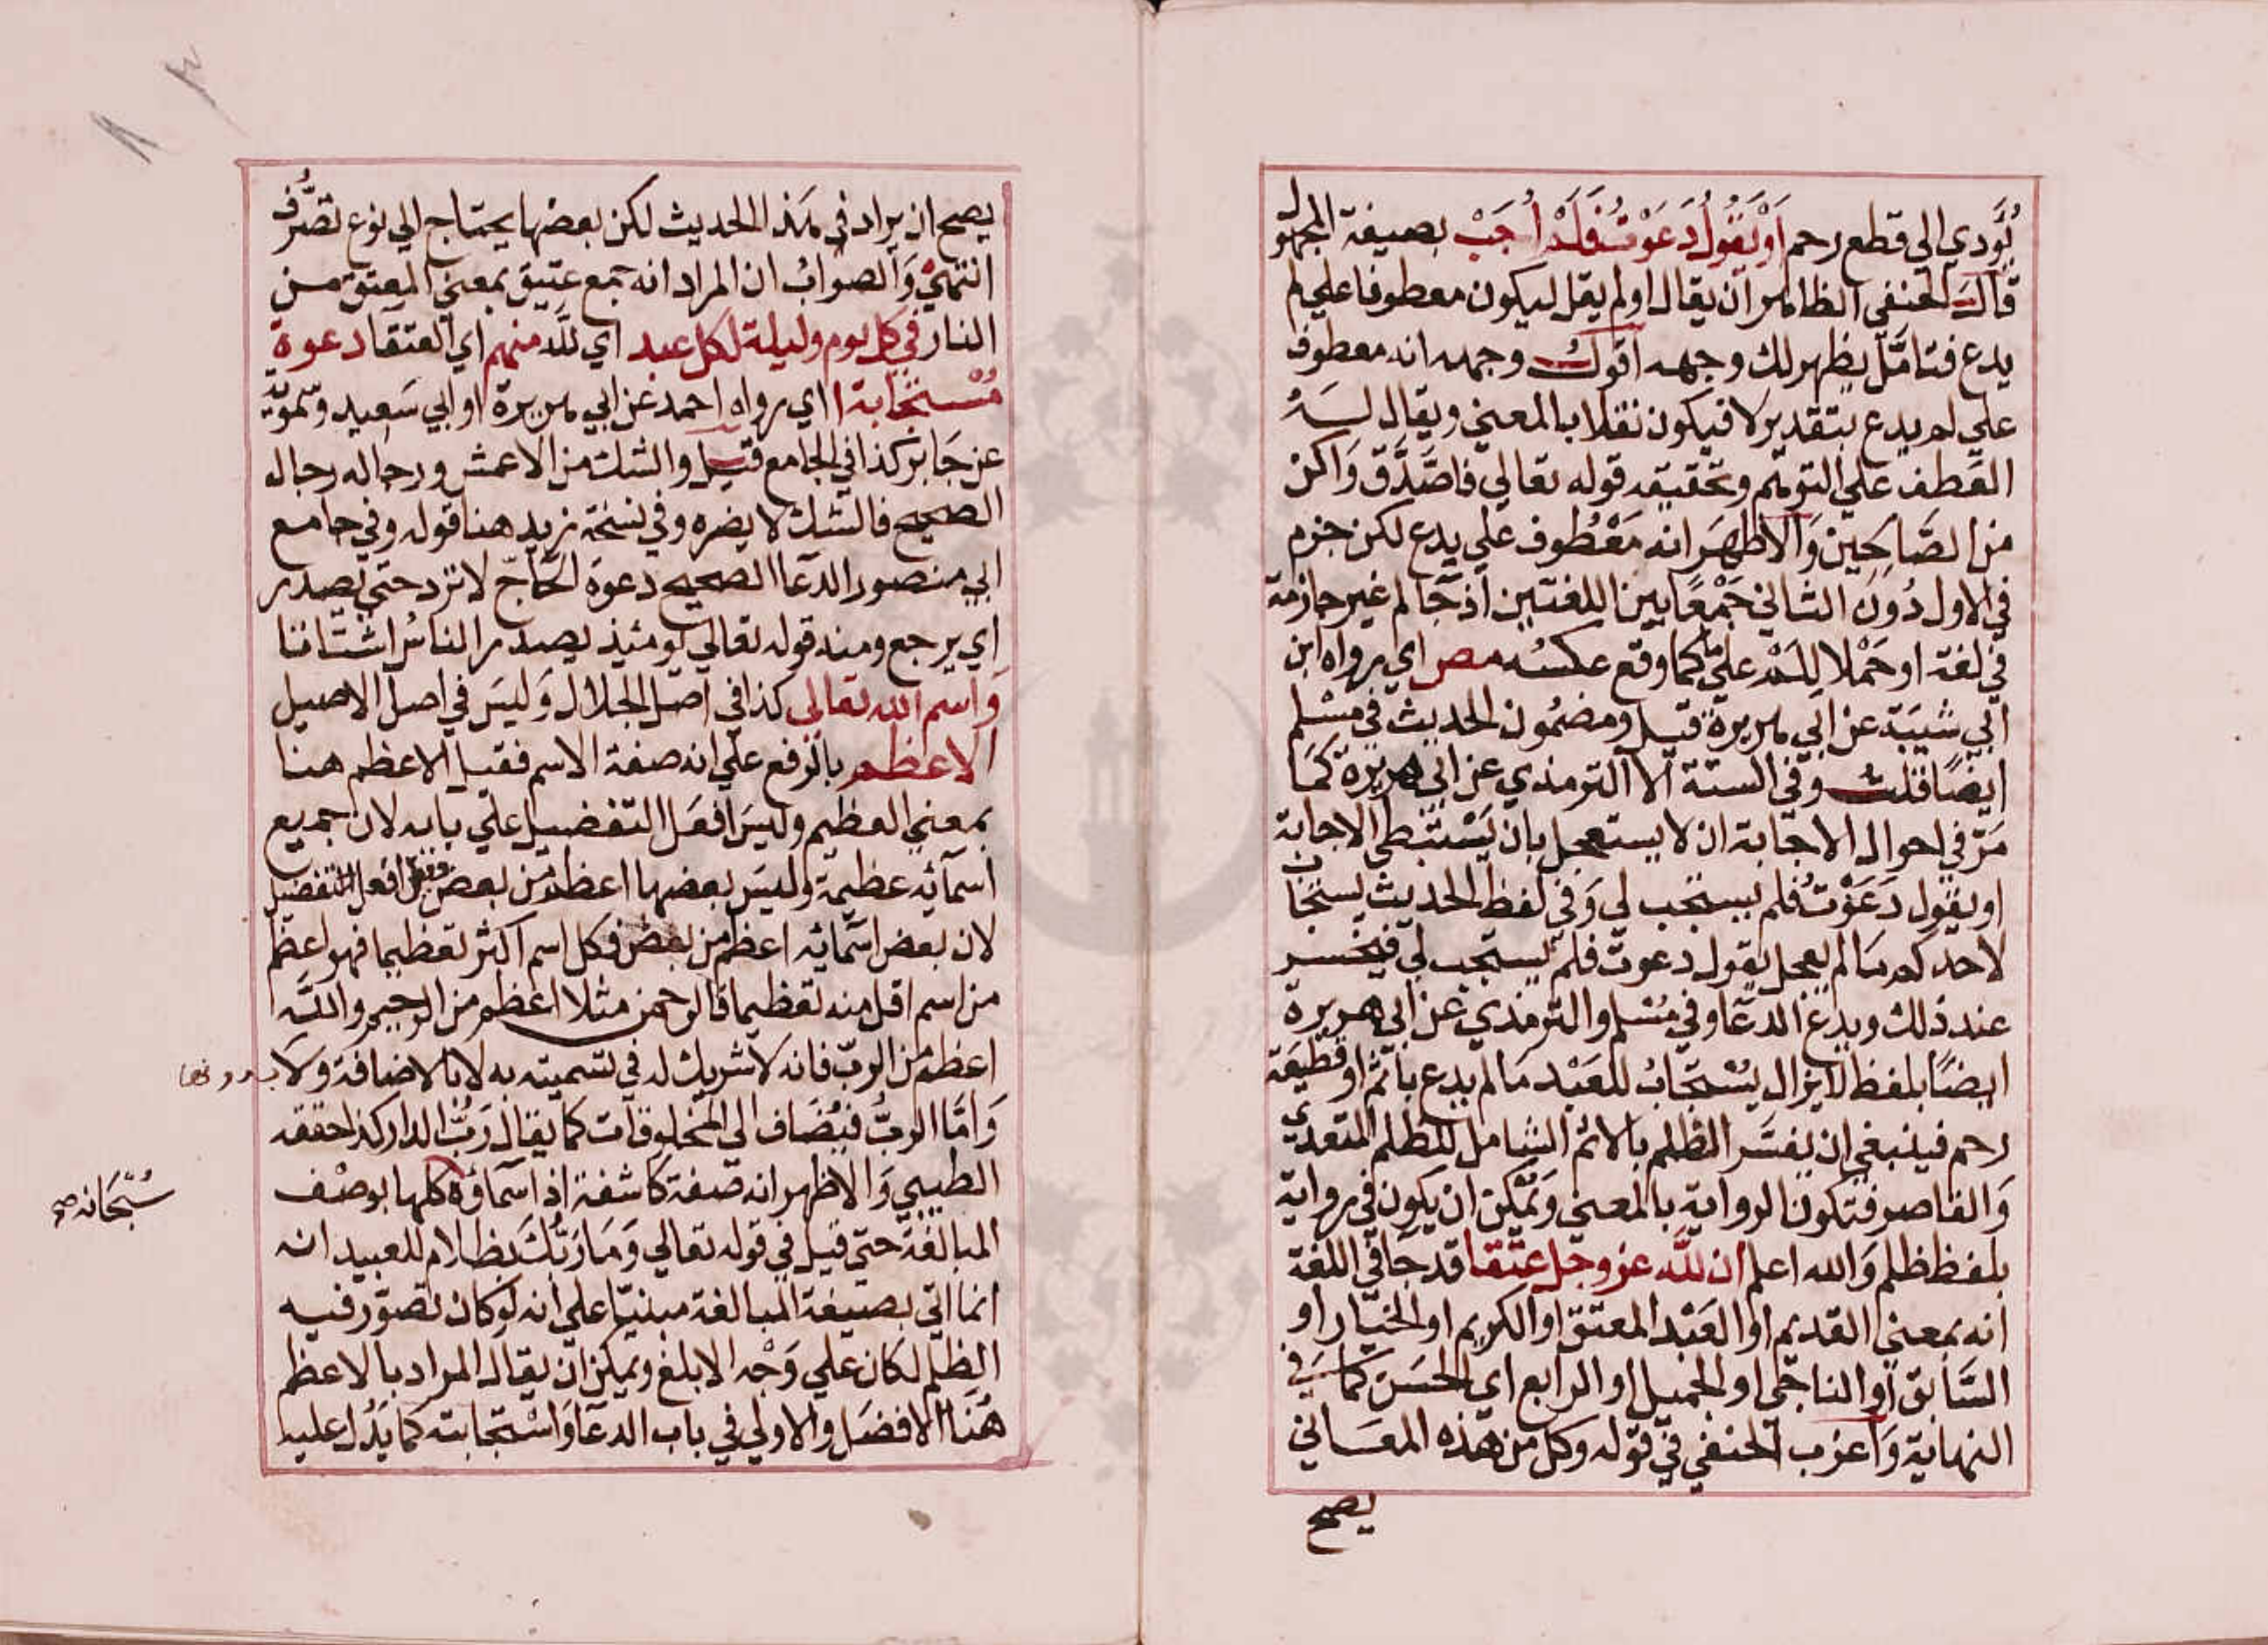 يُؤدي الي قطع رحم اَوْ يَقُولُ دَعَوْتُ فَلَمْ اُجَبْ بصيغة المجهول
قال الحنفي الظاهر ان يقال او لم يقل ليكون معطوفا علي لم
يدع فتامّل يظهر لك وجهه اقول وجهه انه معطوف
علي لم يدع بتقدير لا فيكون نقلا بالمعني ويقال له
العطف علي التوهم وتحقيقه قوله تعالي فاصَّدَّق وَاكن
من الصَّالحين وَالاظهر انه مَعْطُوف علي يدع لكن جزم
في الاول دُونَ الثاني جَمْعًا بين اللغتين اذ جَا لم غير جازمة
في لغة او حَمْلا لِلَمْ علي ما كما وقع عكسُه مص اي رواه ابن
ابي شيبَة عن ابي هريرة قيل ومضمُون الحديث في مسْلم
ايضًا قلت وفي الستة الا الترمذي عن ابي هريرة كمَا
مَرّ في احوال الاجَابة ان لا يستعجل بان يَسْتبطي الاجابة
او يقول دَعَوْتُ فلم يستجب لي وَفي لفظ الحديث يستجاب
لاحدكم مَا لم يعجل يقول دعوت فلم يستجب لي فيتحسر
عند ذلك ويدع الدعَا وفي مُسْلم والترمذي عن ابي هريرة
ايضًا بلفظ لا يزال يُسْتجَابُ للعَبْد مَا لم يدع باثم او قطيعَة
رحم فينبغي ان يفسَّر الظلم بالاثم الشامل للظلم المتعدي
وَالقاصر فتكون الرواية بالمعني وَيمكن ان يكون في رواية
بلفظ ظلم وَالله اعلم ان للّه عز وجل عتقا قد جَا في اللغة
انه بمعني القديم او العَبْد المعتق او الكريم او الخيَار او
السَّابق او الناجي او الجميل او الرابع اي الحسَن كما في
النهاية وَاغرب الحنفي في قوله وكل من هذه المعَاني
يصح
يصح ان يراد في هذا الحديث لكن بعضها يحتاج الي نوع تصَرُّف
انتهيْ وَالصوابُ ان المراد انه جمع عتيق بمعني المعتق من
النار في كل يوم وليلة لكل عبد اي للّه منهم اي العتقا دعوة
مُسْتجَابة ا اي رواه احمد عن ابي هريرة او ابي سَعيد وسمويّه
عن جَابر كذا في الجامع قيل والشك من الاعمش ورجاله رجال
الصحيح فالشك لا يضره وفي نسخة زيد هنا قوله وفي جامع
ابي منصور الدعَا الصحيح دعوة الحَاجّ لا ترد حتي يصدر
اي يرجع ومنه قوله تعالي يومئذ يصدر الناسُ اشتَاتا
وَاسم الله تعالي كذا في اصل الجلال وَليسَ في اصل الاصيل
الاعظم بالرفع علي انه صفة الاسم فقيل الاعظم هنا
بمعني العظيم وليسَ افعَل التفضيل علي بابه لان جميع
اسمائه عظيمة وليسَ بعضها اعظم من بعض وقيل افعل التفضيل
لان بعض اسْمائه اعظم من بعض فكل اسم اكثر تعظيما فهو اعظم
من اسم اقل منه تعظيما فالرحمن مثلا اعظم من الرحيم واللّه
اعظم من الربّ فانه لا شريك له في تسميته به لا بالاضافة وَلا بدونها
وَامَّا الربُّ فيُضَاف الي المخلوقات كما يقال رَبُّ الدار كذا حققه
الطيبي وَالاظهر انه صفة كاشفة اذ اسمَاؤه كلها بوصْف
سُبْحَانه صح
المبالغة حتي قيل في قوله تعالي وَمَا رَبُّكَ بظلام للعبيد انه
انما اتي بصيغة المبالغة مبنيّا علي انه لو كان تصوّر فيه
الظلم لكان علي وَجْه الابلغ ويمكن ان يقال المراد بالاعظم
هُنا الافضَل والاولي في باب الدعَا وَاسْتجابته كما يَدُل عليه